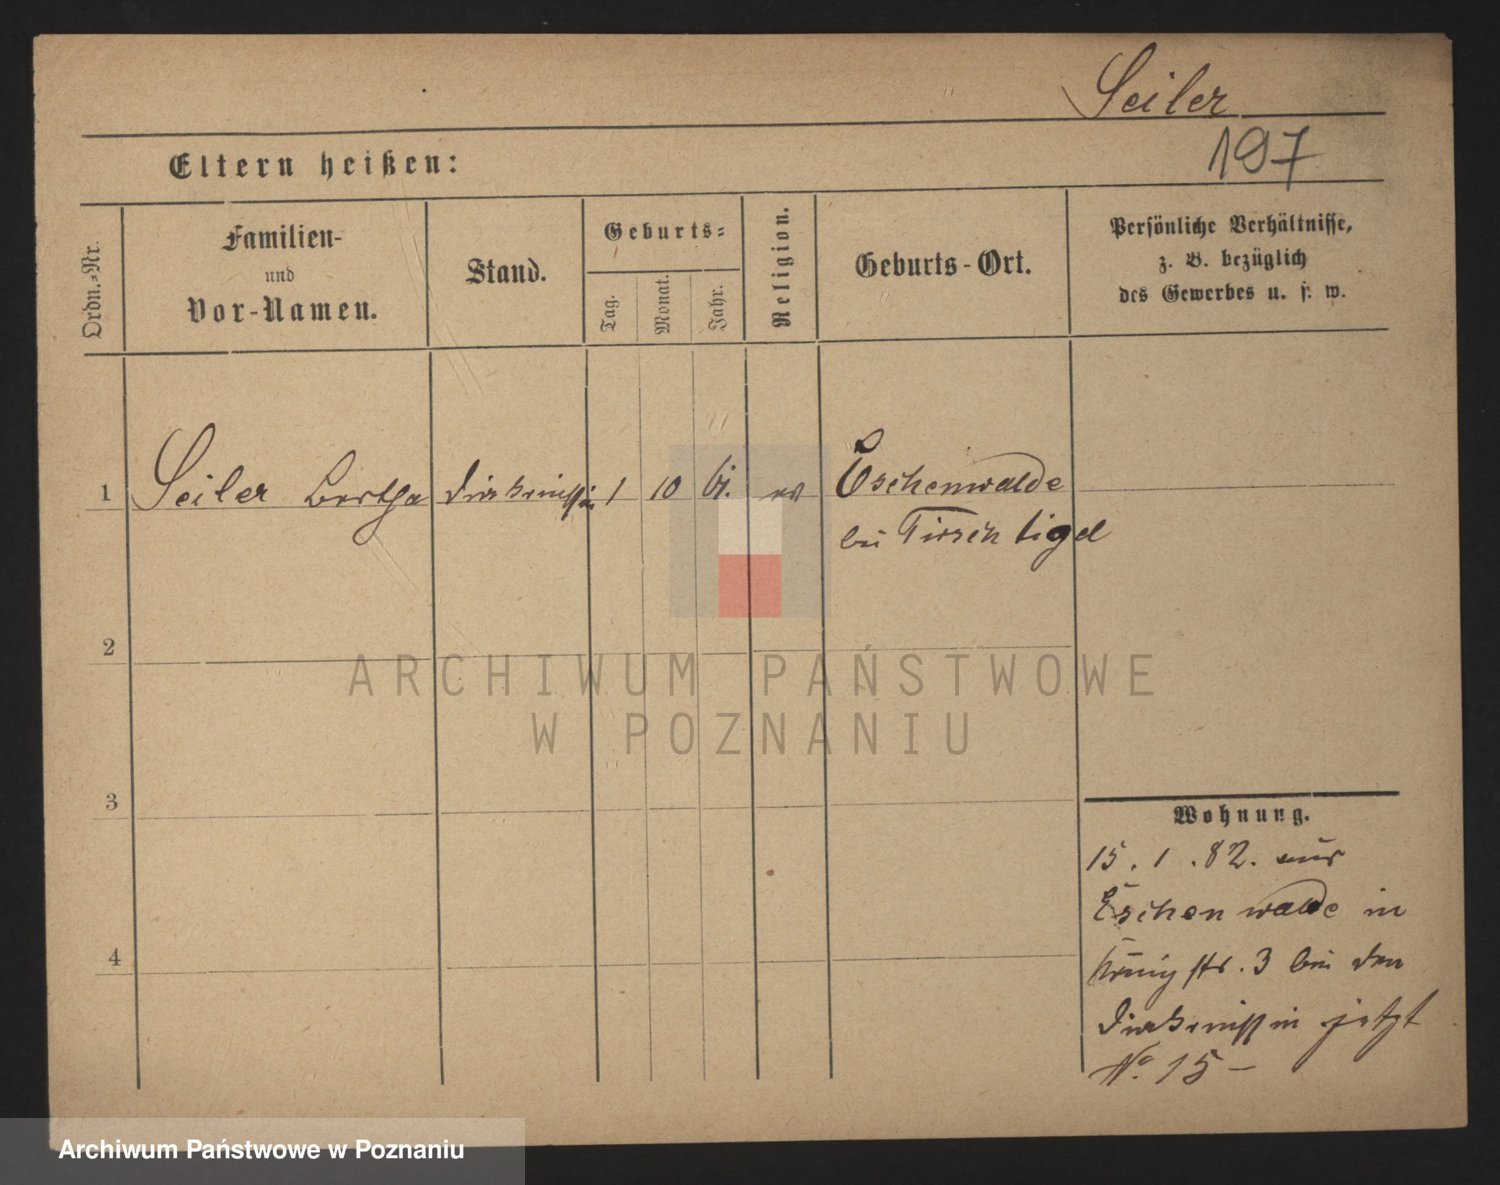 Seiler
197
Eltern heißen:
Ordn.-Nr.
Familien-
und
Vor-Namen.
Stand.
Geburts-
Tag.
Monat.
Jahr.
Religion.
Geburts-Ort.
Persönliche Verhältnisse,
z. B. bezüglich
des Gewerbes u. s. w.
1 Seiler Bertha Diakonissin 1 10 61. ev Eschenwalde
bei Tirschtigel
2
3
4
Wohnung.
15. 1. 82. aus
Eschenwalde in
Königstr. 3 bei den
Diakonissin jetzt
No. 15 -
ARCHIWUM PAŃSTWOWE
W POZNANIU
Archiwum Państwowe w Poznaniu